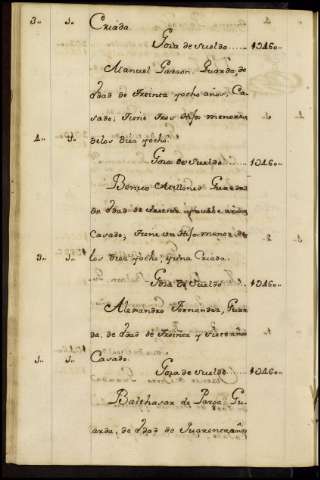 3.. 1.. Criada.
Goza de sueldo ..... 1046..
Manuel Garzon, Guarda, de
edad de treinta y ocho años, Ca-
sado, tiene tres Hijos menores
1.. 1.. de los diez y ocho.
Goza de sueldo ..... 1046..
Benito Guarda
de edad de treinta años
Casado, tiene un Hijo menor de
3.. 1.. los diez y ocho, y una Criada.
Goza de sueldo .. 1046..
Alexandro Fernandez, Guar-
da, de edad de treinta y siete años
1.. 1.. Casado.
Goza de sueldo .. 1046..
Balthasar de Parga, Gu-
arda, de edad de quarenta años